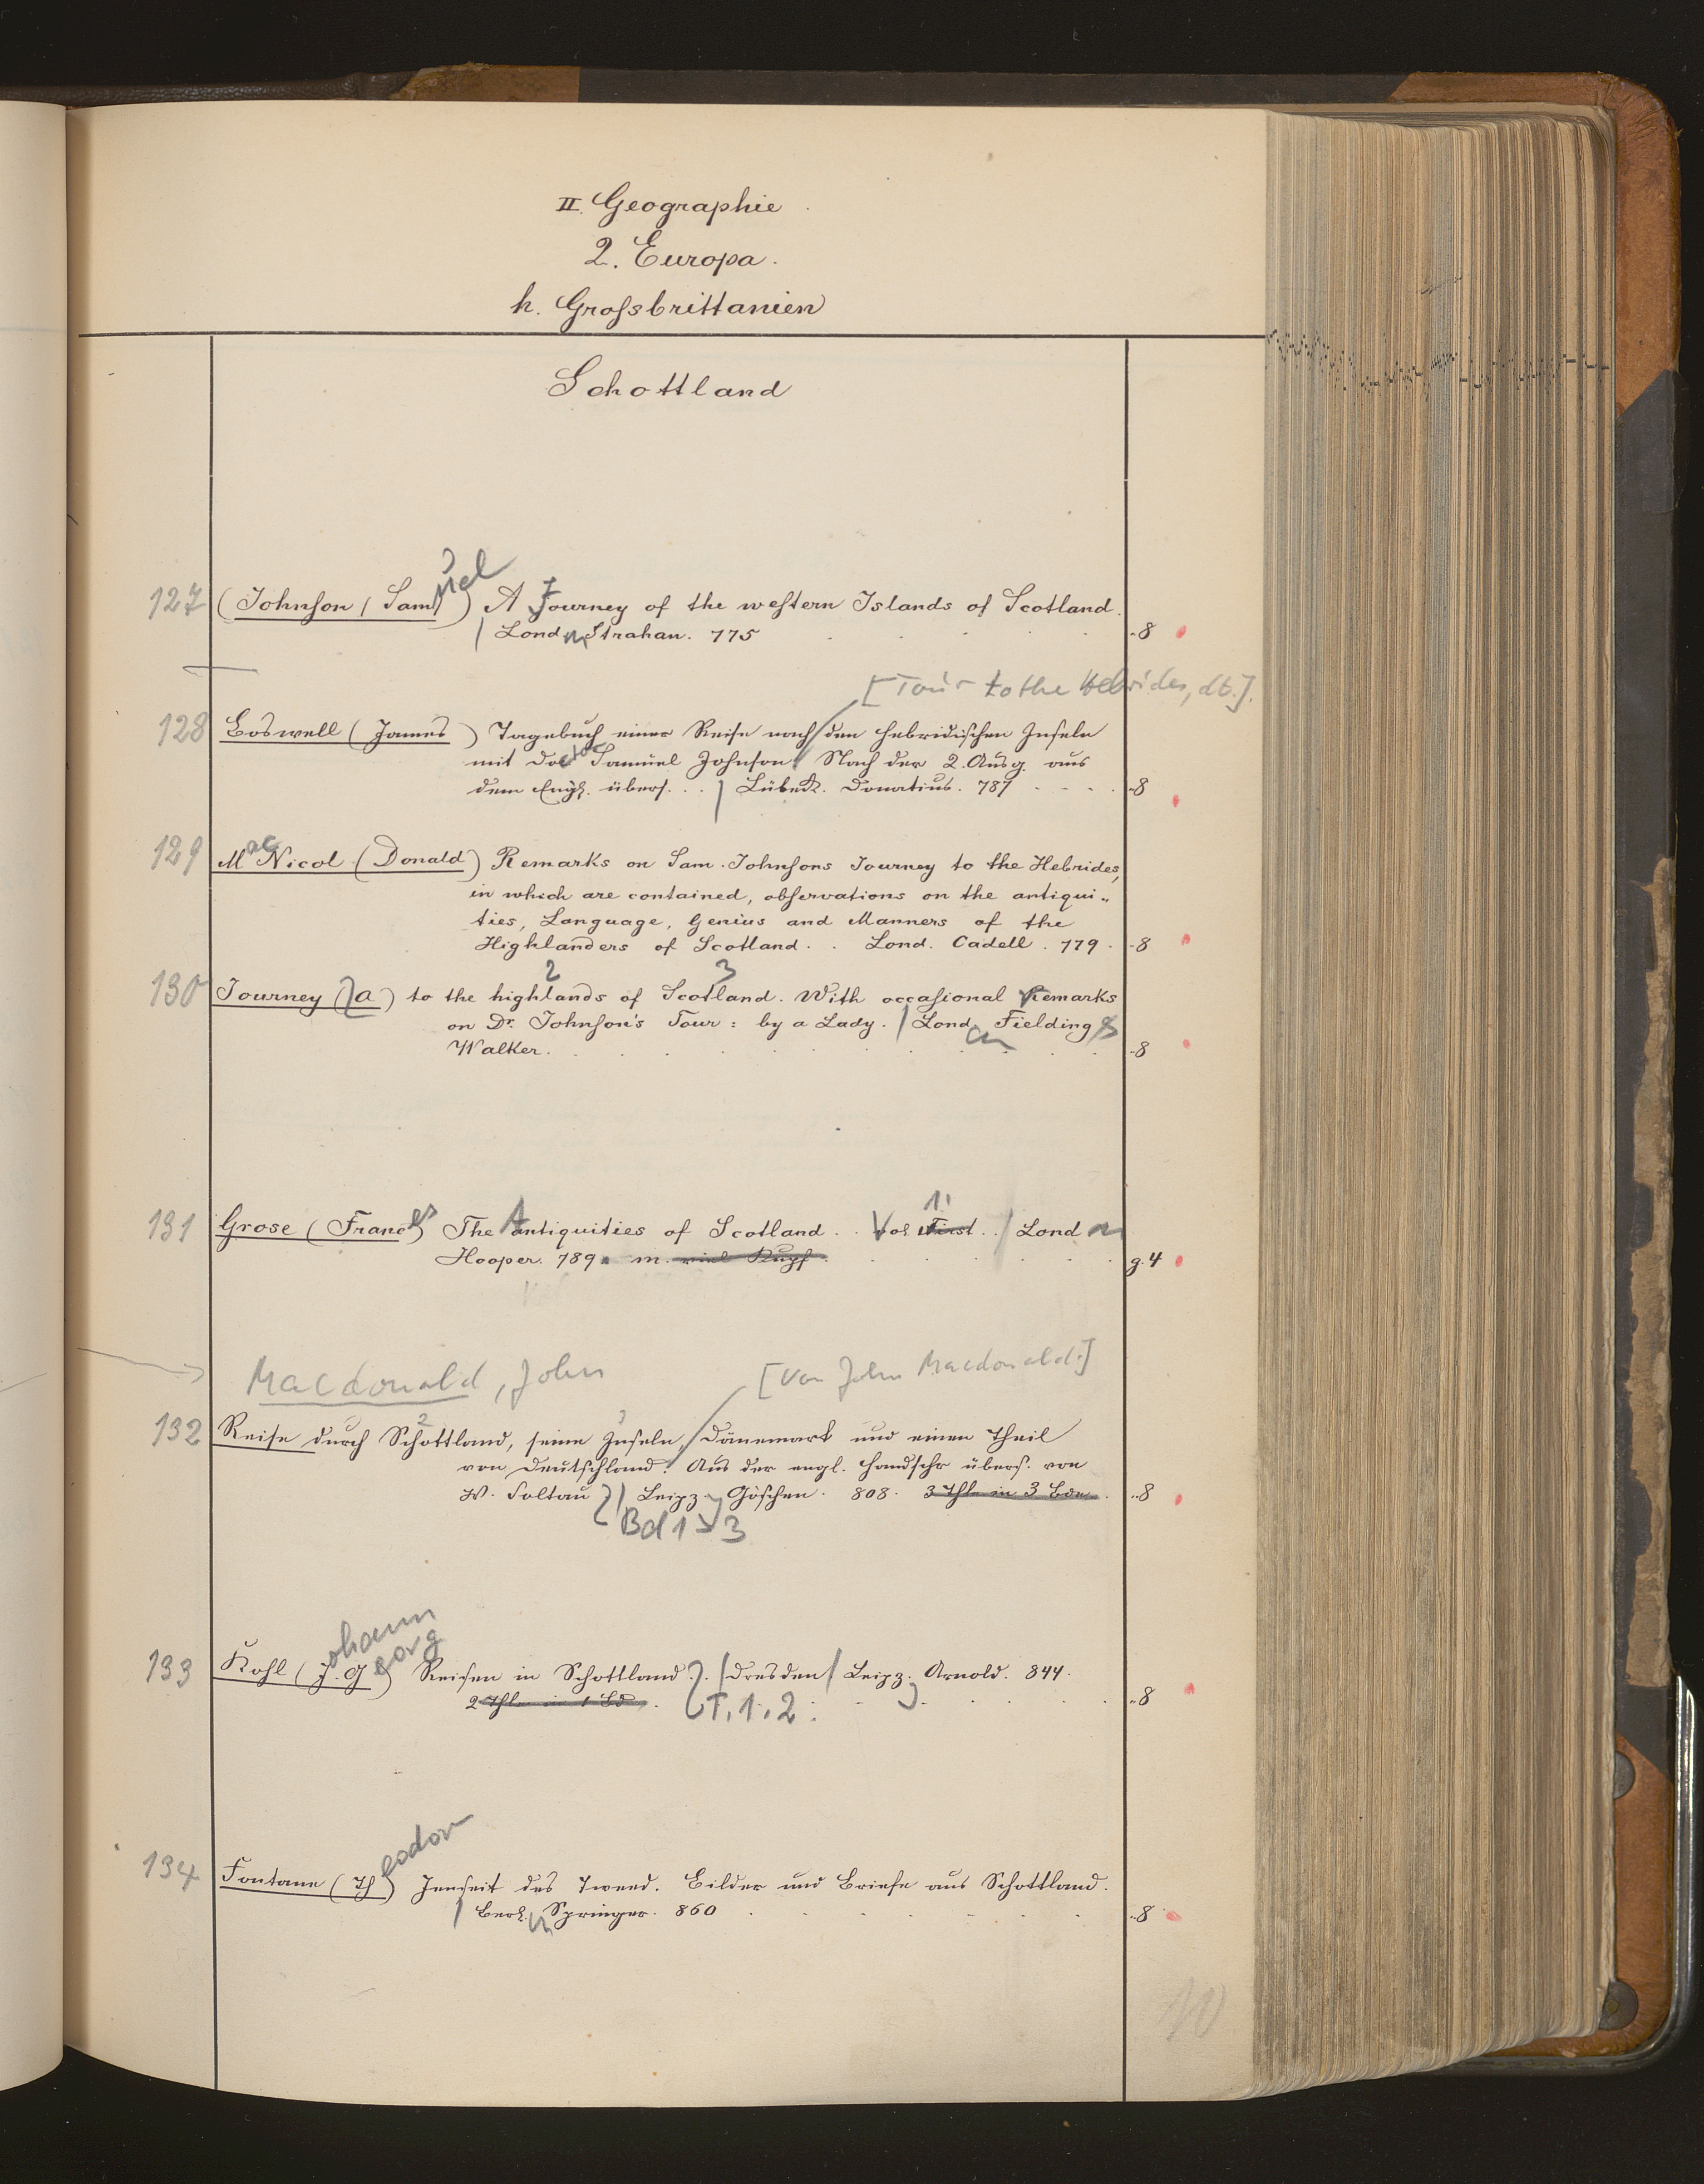 II. Geographie
2. Europa.
h. Grossbrittanien
Schottland
127 (Johnson (Samuel) A Journey of the western Islands of Scotland.
Lond Strahan. 775 8
[Tour to the Hebrides, dt.].
128 Boswell (James) Tagebuch einer Reise nach den hebridischen Inseln
mit Doctor Samuel Johnson Nach der 2. Ausg. aus
dem Engl. übers. . . Lübeck. Donatius. 787 8
129 MacNicol (Donald) Remarks on Sam. Johnsons Journey to the Hebrides,
in which are contained, observations on the antiqui-
ties, Language, Genius and Manners of the
Highlanders of Scotland. . Lond. Cadell. 779. 8
2 3
130 Journey (a) to the highlands of Scotland. With occasional Remarks
on Dr. Johnson's Tour: by a Lady. Lond. Fielding &
Walker. 8
1!
131 Grose (Francis) The Antiquities of Scotland. . Vol. First. . Lond
Hooper. 789. m. viel Kupf. g. 4
Macdonald, John [Von John Macdonald.]
2 3
132 Reise durch Schottland, seine Inseln, Dänemark und einen Theil
von Deutschland. Aus der engl. Handschr übers. von
W. Soltau Leipz. Göschen. 808. 3 Thle in 3 Bde. 8
Bd 1-3
133 Kohl (Johann Georg) Reisen in Schottland. Dresden Leipz. Arnold. 844.
2 Thle in 1 Bd. T. 1. 2. 8
134 Fontane (Theodor) Jenseit des Tweed. Bilder und Briefe aus Schottland.
Berl. Springer. 860 8
10